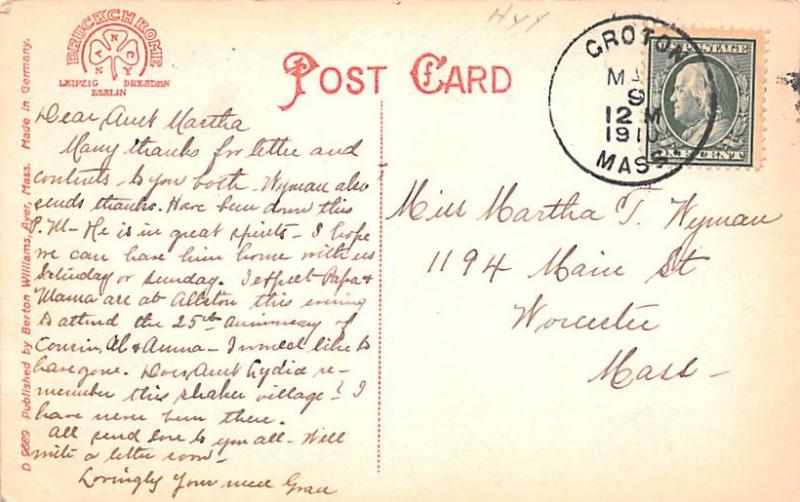 Hyy
DRUCKCHROME
N N C Y
LEIPZIG DRESDEN
BERLIN
POST CARD
GROTON
MA
9
12 M
1910
MASS
U.S. POSTAGE
ONE CENT
D 9689 Published by Berton Williams, Ayer, Mass. Made in Germany.
Dear Aunt Martha
Many thanks for letter and
contents - to you both. Wyman also
sends thanks. Have been down this
P.M - He is in great spirits - I hope
we can have him home with us
Saturday or Sunday. I expect Papa &
Mama are at Allston this evening
to attend the 25th anniversary of
Cousin Al & Anna - I would like to
have gone. Does Aunt Lydia re-
member this shaker village? I
have never been there.
All send love to you all - Will
write a letter soon -
Lovingly your niece Grace
Miss Martha T. Wyman
1194 Main St
Worcester
Mass -